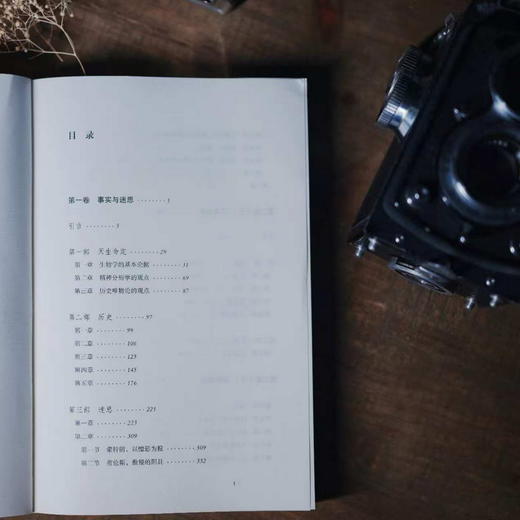 目 录
第一卷 事实与迷思 ········ 1
引言 ········ 3
第一部 天生命定 ········ 29
第一章 生物学的基本论据 ········ 31
第二章 精神分析学的观点 ········ 69
第三章 历史唯物论的观点 ········ 87
第二部 历史 ········ 97
第一章 ········ 99
第二章 ········ 106
第三章 ········ 125
第四章 ········ 145
第五章 ········ 176
第三部 迷思 ········ 223
第一章 ········ 225
第二章 ········ 309
第一节 蒙特朗，以憎恶为粮 ········ 309
第二节 劳伦斯，骄傲的阴具 ········ 332
1